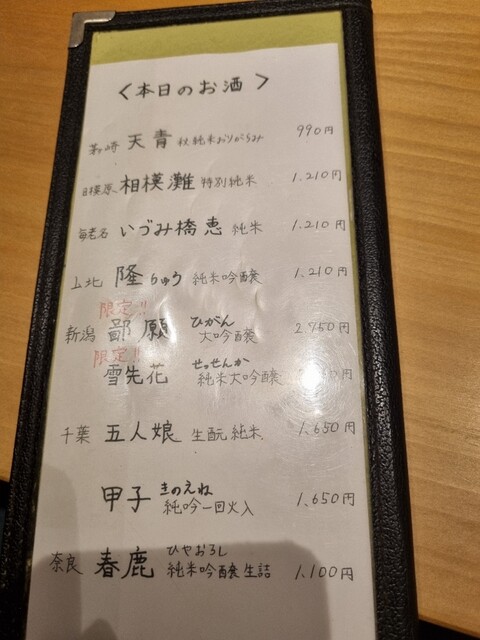 〈本日のお酒〉
茅ヶ崎 天青 秋純米おりがらみ 990円
相模原 相模灘 特別純米 1.210円
海老名 いづみ橋 恵 純米 1.210円
山北 隆 りゅう 純米吟醸 1.210円
限定!!
新潟 鄙願 ひがん 大吟醸 2.750円
限定!!
雪先花 せっせんか 純米大吟醸 円
千葉 五人娘 生酛純米 1.650円
甲子 きのえね 純吟一回火入 1.650円
奈良 春鹿 ひやおろし 純米吟醸生詰 1.100円